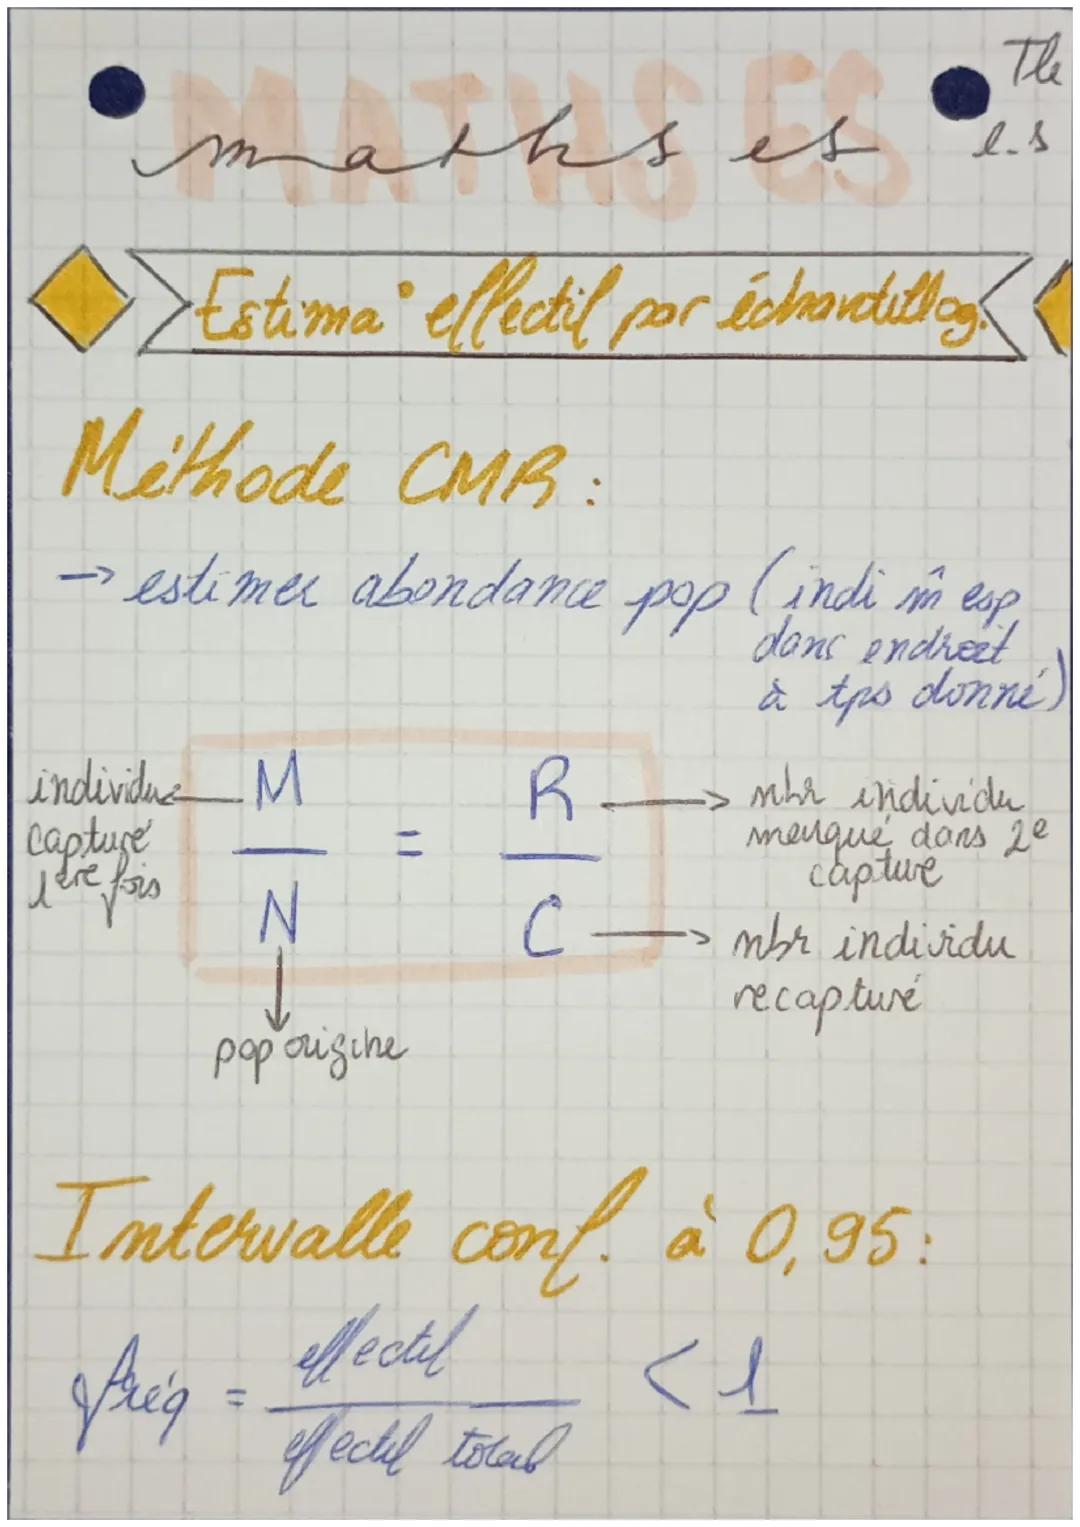 MATHS ES
maths es
Tle
e.s
Estima° effectif par échantillog.
Méthode CMR :
→ estimer abondance pop (indi m̂ esp
dans endroit
à tps donné)
individu capturé 1ère fois
M = R
N C
→ nbr individu
marqué dans 2e
capture
→ nbr individu
recapturé
pop origine
Intervalle conf. à 0,95 :
fréq = effectif < 1
effectif total